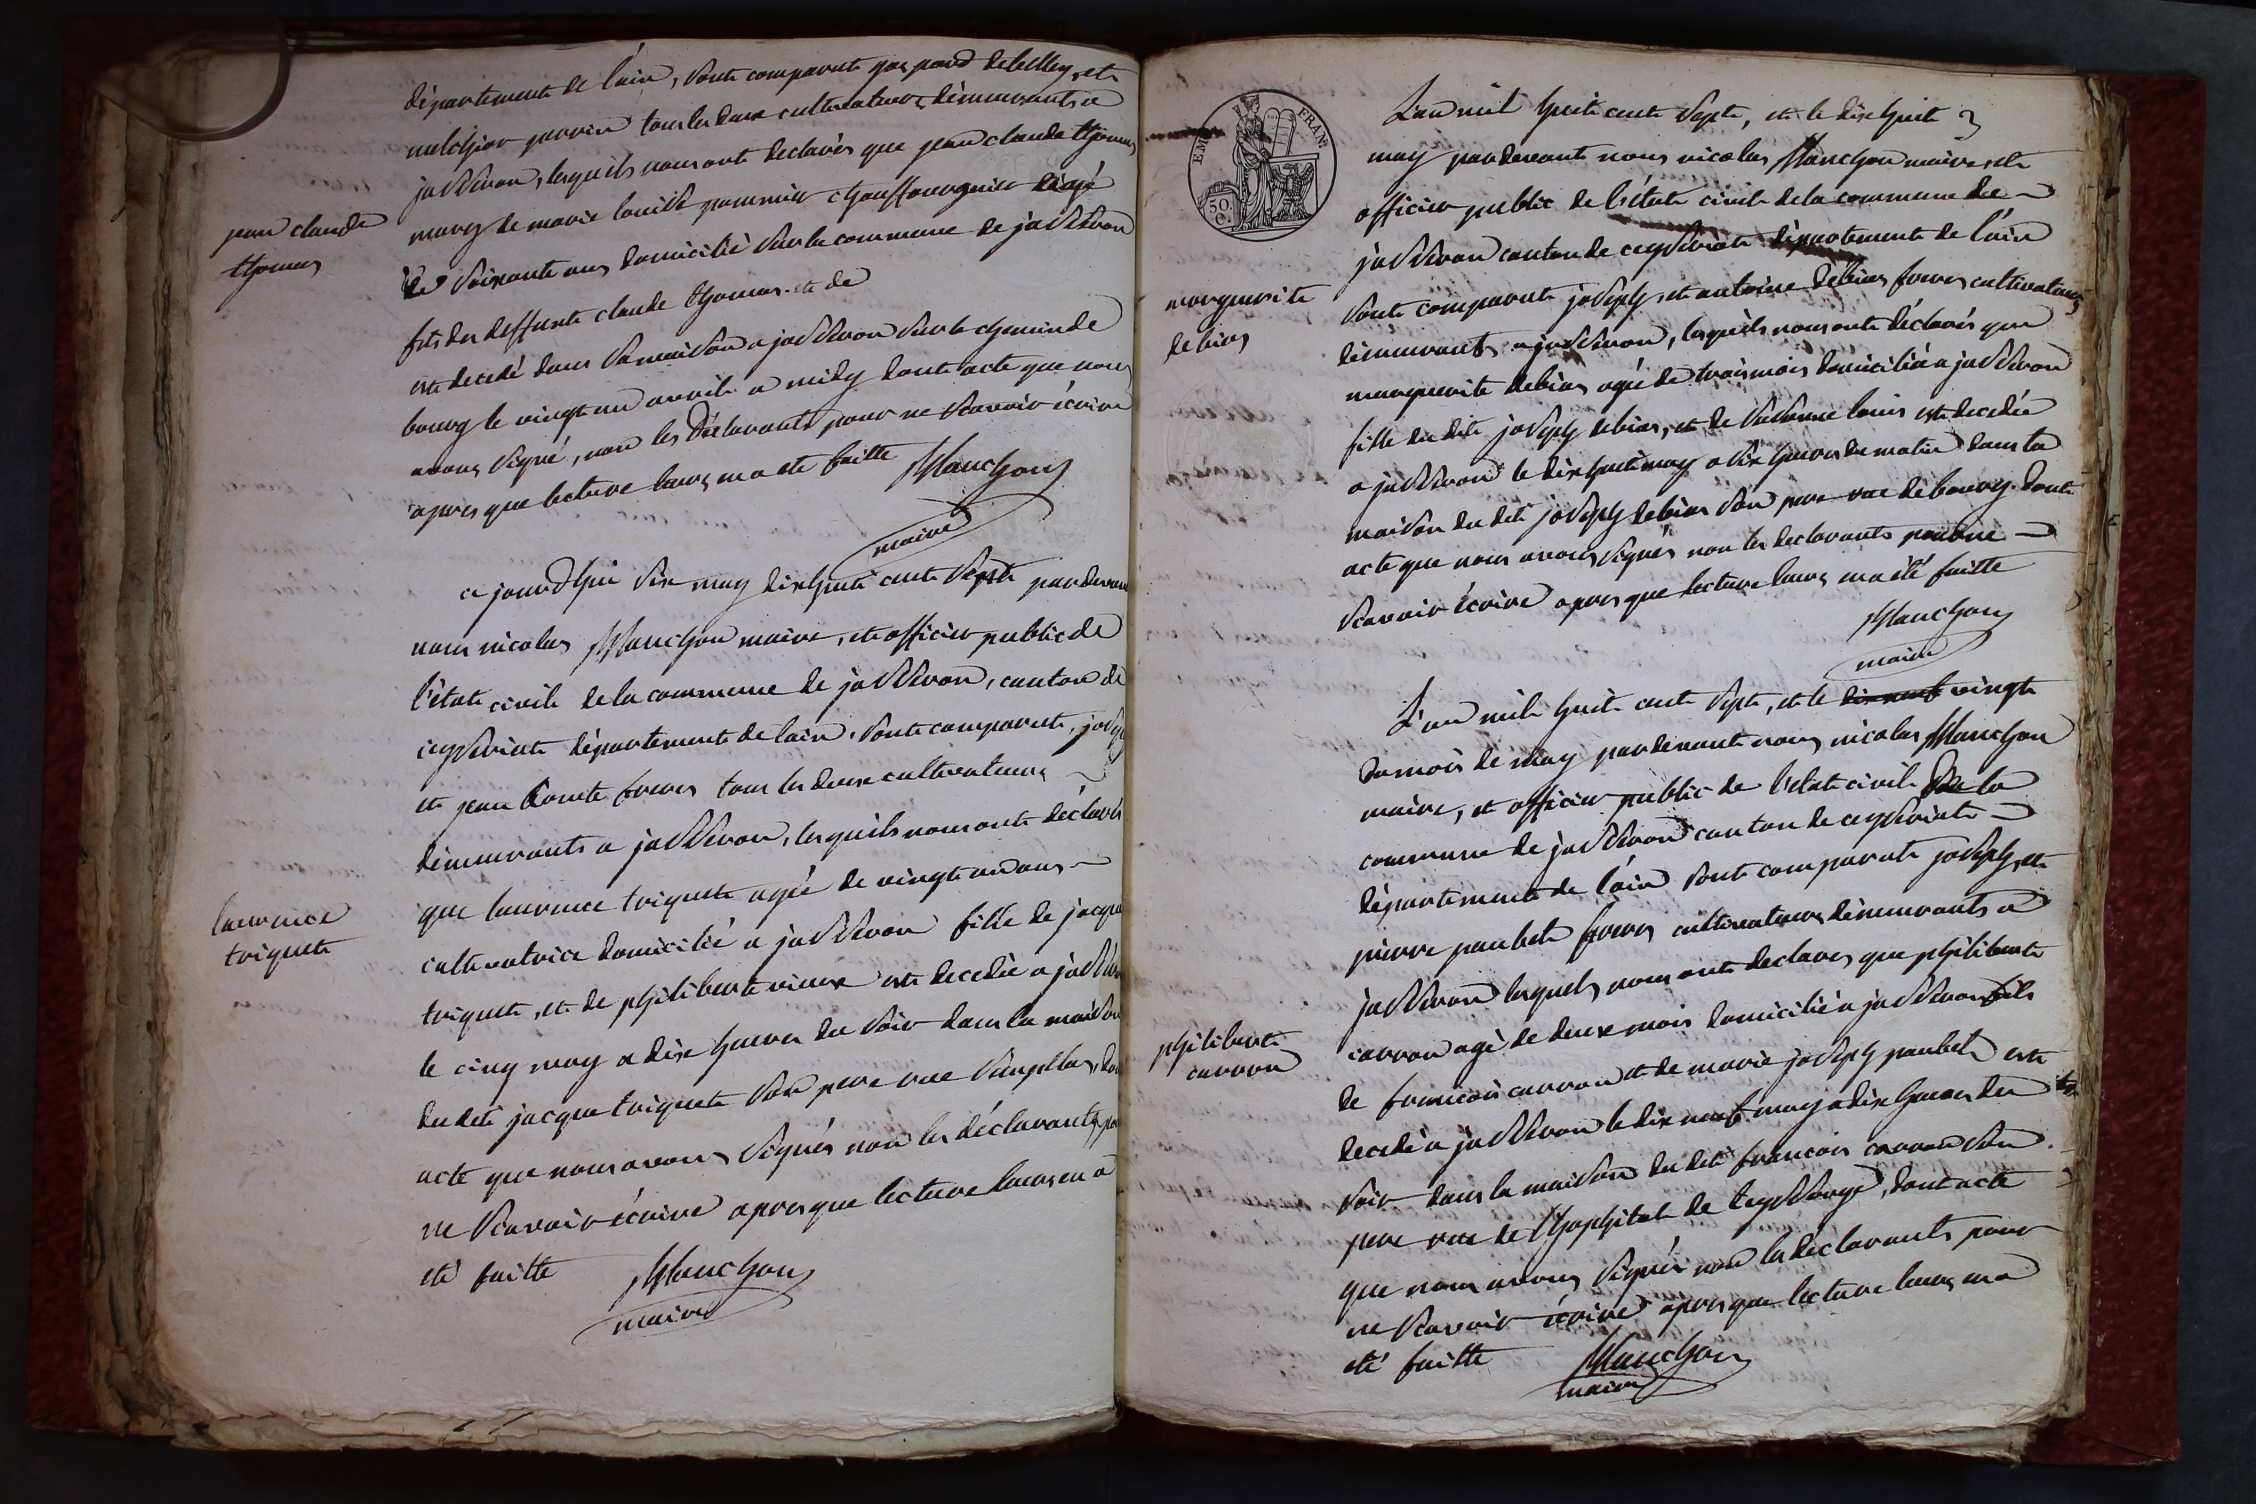 département de l'ain, sont comparut gaspard debelley, et
melchior perrin tous les deux cultivateurs demeurants a
jasseron, lesquels nous ont declarés que jean claude thomas
jean claude
thomas
marez de marie louise pommier chauffournier âgé
de soixante ans domicilié sur la commune de jasseron
fils du deffunt claude thomas et de
est decedé dans sa maison a jasseron sur le chemin de
bourg le vingt un avril a midy dont acte que nous
avons signé, non les déclarants pour ne scavoir écrire
apres que lecture leurs en a été faitte Manchon
maire
ce jourd'hui six may dix huit cent sept par devant
nous nicolas Manchon maire, et officier public de
l'état civil de la commune de jasseron, canton de
ceyseriat département de l'ain, sont comparut, joseph
et jean Comte freres tous les deux cultivateurs
demeurants a jasseron, lesquels nous ont déclarés
laurence
triquet
que laurence triquet agée de vingt un ans
cultivatrice domicilié a jasseron fille de jacque
triquet, et de philiberte est decedée a jasseron
le cinq may a dix heures du soir dans la maison
du dit jacque triquet son pere rue dont
acte que nous avons signés non les déclarants pour
ne scavoir écrire apres que lecture leurs en a
été faitte Manchon
maire
EMP FRAN
50
C.
L'an mil huit cent sept, et le dix huit
may par devant nous nicolas Manchon maire et
officier public de l'état civil de la commune de
jasseron canton de ceyseriat département de l'ain
marguerite
debias
sont comparut joseph, et antoine debias freres cultivateurs
demeurants a jasseron, lesquels nous ont déclarés que
marguerite debias agée de trois mois domiciliée a jasseron
fille du dit joseph debias, et de louis est decedée
a jasseron le dix huit may a six heures du matin dans la
maison du dit joseph debias son pere rue de bourg. dont
acte que nous avons signés non les declarants pour ne
scavoir écrire apres que lecture leurs en a été faitte
Manchon
maire
L'an mil huit cent sept, et le dix neuf vingt
du mois de may par devant nous nicolas Manchon
maire, et officier public de l'état civil de la
commune de jasseron canton de ceyseriat
département de l'ain sont comparut joseph, et
pierre paubel freres cultivateurs demeurants a
jasseron lesquels nous ont declarés que philibert
philibert
carron
carron agé de deux mois domicilié a jasseron fils
de francois carron et de marie joseph paubel est
decedé a jasseron le dix neuf may a dix heures du
soir dans la maison du dit francois carron son
pere rue de l'hophital de teyssonge, dont acte
que nous avons signés non les declarants pour
ne scavoir écrire apres que lecture leurs en a
été faitte Manchon
maire